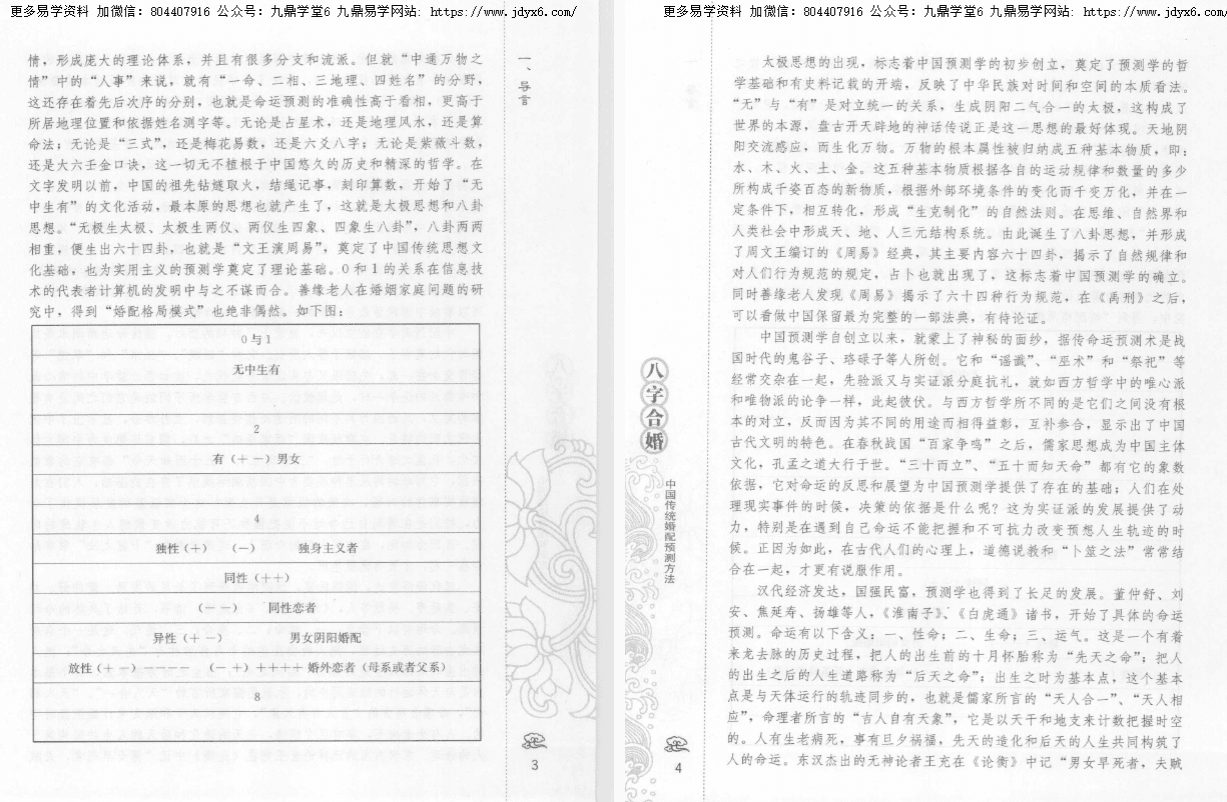 更多易学资料 加微信：804407916 公众号：九鼎学堂6 九鼎易学网站：https://www.jdyx6.com/
情，形成庞大的理论体系，并且有很多分支和流派。但就“中通万物之
情”中的“人事”来说，就有“一命、二相、三地理、四姓名”的分野，
这还存在着先后次序的分别，也就是命运预测的准确性高于看相，更高于
所居地理位置和依据姓名测字等。无论是占星术，还是地理风水，还是算
命法；无论是“三式”，还是梅花易数，还是六爻八字；无论是紫薇斗数，
还是大六壬金口诀，这一切无不植根于中国悠久的历史和精深的哲学。在
文字发明以前，中国的祖先钻燧取火，结绳记事，刻印算数，开始了“无
中生有”的文化活动，最本原的思想也就产生了，这就是太极思想和八卦
思想。“无极生太极、太极生两仪、两仪生四象、四象生八卦”，八卦两两
相重，便生出六十四卦，也就是“文王演周易”，奠定了中国传统思想文
化基础，也为实用主义的预测学奠定了理论基础。0和1的关系在信息技
术的代表者计算机的发明中与之不谋而合。善缘老人在婚姻家庭问题的研
究中，得到“婚配格局模式”也绝非偶然。如下图：
0与1
无中生有
2
有（+－）男女
4
独性（+） （－） 独身主义者
同性（++）
（－－） 同性恋者
异性（+－） 男女阴阳婚配
放性（+－）－－－－ （－+）++++ 婚外恋者（母系或者父系）
8
一、导言
3
更多易学资料 加微信：804407916 公众号：九鼎学堂6 九鼎易学网站：https://www.jdyx6.com/
八字合婚
中国传统婚配预测方法
太极思想的出现，标志着中国预测学的初步创立，奠定了预测学的哲
学基础和有史料记载的开端，反映了中华民族对时间和空间的本质看法。
“无”与“有”是对立统一的关系，生成阴阳二气合一的太极，这构成了
世界的本源，盘古开天辟地的神话传说正是这一思想的最好体现。天地阴
阳交流感应，而生化万物。万物的根本属性被归纳成五种基本物质，即：
水、木、火、土、金。这五种基本物质根据各自的运动规律和数量的多少
所构成千姿百态的新物质，根据外部环境条件的变化而千变万化，并在一
定条件下，相互转化，形成“生克制化”的自然法则。在思维、自然界和
人类社会中形成天、地、人三元结构系统。由此诞生了八卦思想，并形成
了周文王编订的《周易》经典，其主要内容六十四卦，揭示了自然规律和
对人们行为规范的规定，占卜也就出现了，这标志着中国预测学的确立。
同时善缘老人发现《周易》揭示了六十四种行为规范，在《禹刑》之后，
可以看做中国保留最为完整的一部法典，有待论证。
中国预测学自创立以来，就蒙上了神秘的面纱，据传命运预测术是战
国时代的鬼谷子、珞琭子等人所创。它和“谣谶”、“巫术”和“祭祀”等
经常交杂在一起，先验派又与实证派分庭抗礼，就如西方哲学中的唯心派
和唯物派的论争一样，此起彼伏。与西方哲学所不同的是它们之间没有根
本的对立，反而因为其不同的用途而相得益彰，互补参合，显示出了中国
古代文明的特色。在春秋战国“百家争鸣”之后，儒家思想成为中国主体
文化，孔孟之道大行于世。“三十而立”、“五十而知天命”都有它的象数
依据，它对命运的反思和展望为中国预测学提供了存在的基础；人们在处
理现实事件的时候，决策的依据是什么呢？这为实证派的发展提供了动
力，特别是在遇到自己命运不能把握和不可抗力改变预想人生轨迹的时
候。正因为如此，在古代人们的心理上，道德说教和“卜筮之法”常常结
合在一起，才更有说服作用。
汉代经济发达，国强民富，预测学也得到了长足的发展。董仲舒、刘
安、焦延寿、扬雄等人，《淮南子》、《白虎通》诸书，开始了具体的命运
预测。命运有以下含义：一、性命；二、生命；三、运气。这是一个有着
来龙去脉的历史过程，把人的出生前的十月怀胎称为“先天之命”；把人
的出生之后的人生道路称为“后天之命”；出生之时为基本点，这个基本
点是与天体运行的轨迹同步的，也就是儒家所言的“天人合一”、“天人相
应”，命理者所言的“古人自有天象”，它是以天干和地支来计数把握时空
的。人有生老病死，事有旦夕祸福，先天的造化和后天的人生共同构筑了
人的命运。东汉杰出的无神论者王充在《论衡》中记“男女早死者，夫贼
4